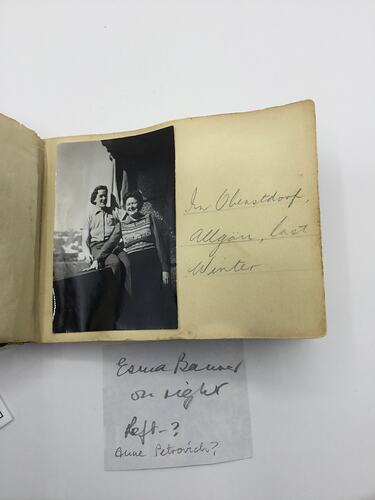 In Oberstdorf,
Allgäu, last
Winter
Esma Banner
on right
Left - ?
Anne Petrovich?